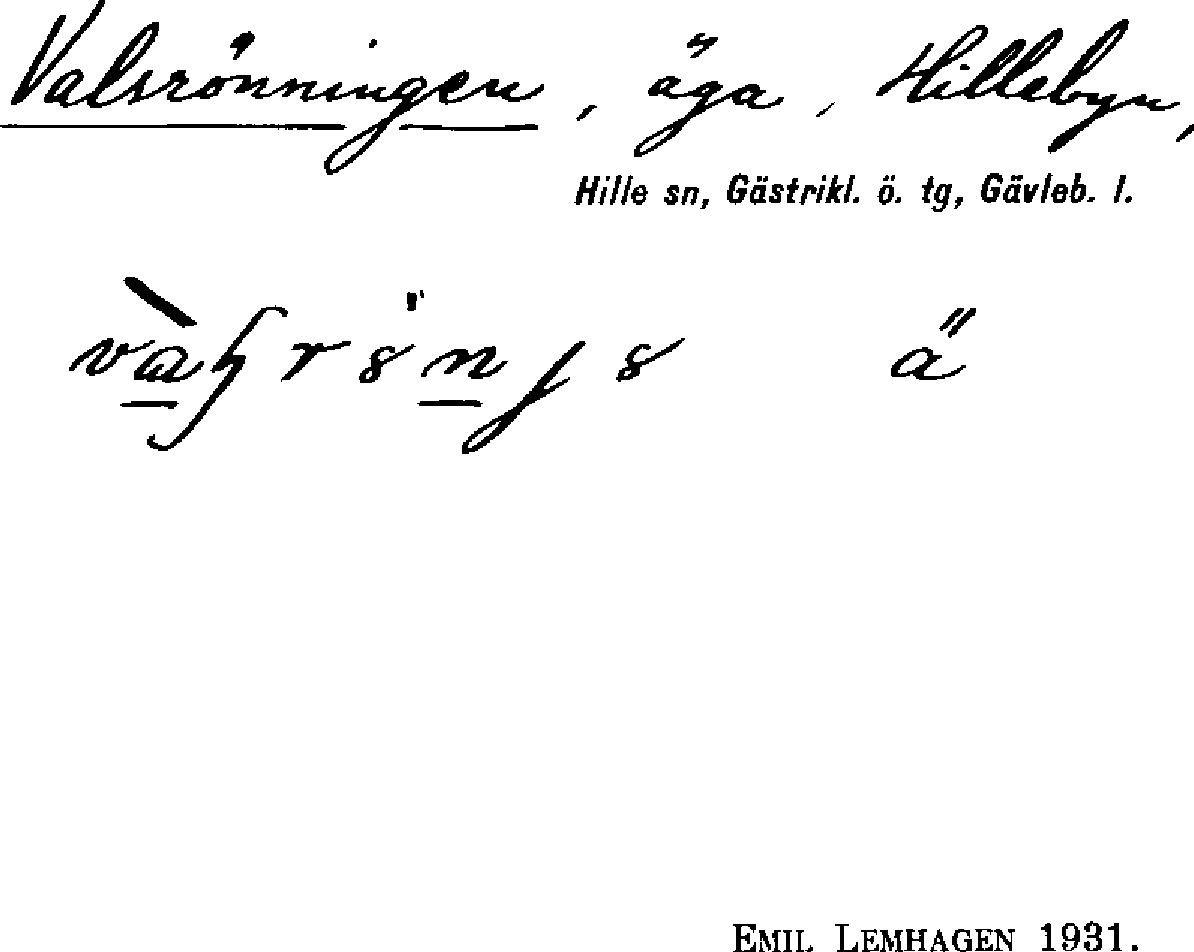 Valsrönningen, äga, Hillebyn,
Hille sn, Gästrikl. ö. tg, Gävleb. l.
ä
EMIL LEMHAGEN 1931.